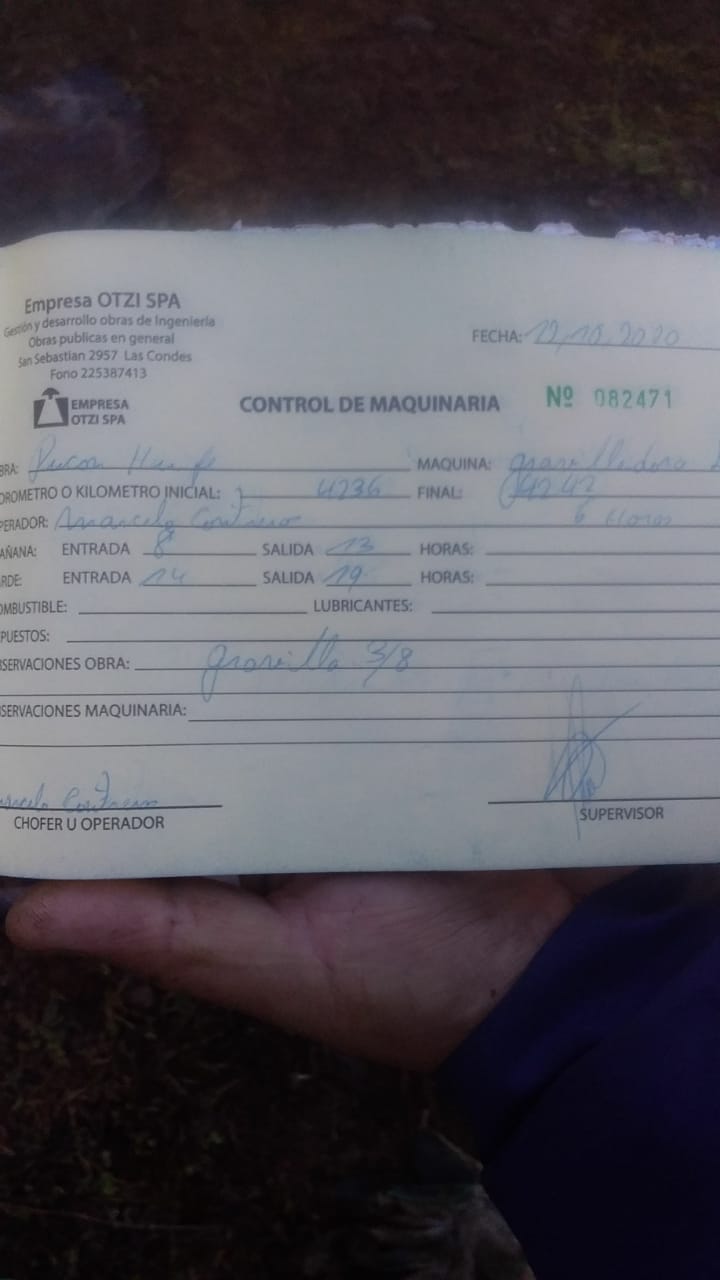 Empresa OTZI SPA
Gestión y desarrollo obras de Ingenieria
Obras publicas en general
San Sebastian 2957 Las Condes
Fono 225387413
FECHA: 12.10.2020
EMPRESA
OTZI SPA
CONTROL DE MAQUINARIA
Nº 082471
BRA: Pucon MAQUINA: gravilladora
OROMETRO O KILOMETRO INICIAL: 4236 FINAL: 4242
PERADOR: Marcelo Contreras 6 Horas
AÑANA: ENTRADA 8 SALIDA 13 HORAS:
RDE: ENTRADA 14 SALIDA 19 HORAS:
OMBUSTIBLE: LUBRICANTES:
PUESTOS:
SERVACIONES OBRA: gravilla 3/8
SERVACIONES MAQUINARIA:
arcelo Contreras
CHOFER U OPERADOR
SUPERVISOR